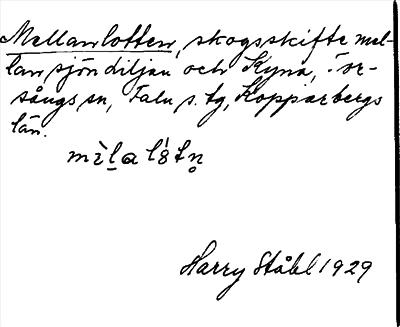 Mellanlotten, skogsskifte mel-
lan sjön Liljan och Kyna, i Tor-
sångs sn, Falu s. tg, Kopparbergs
län.
Harry Ståhl 1929